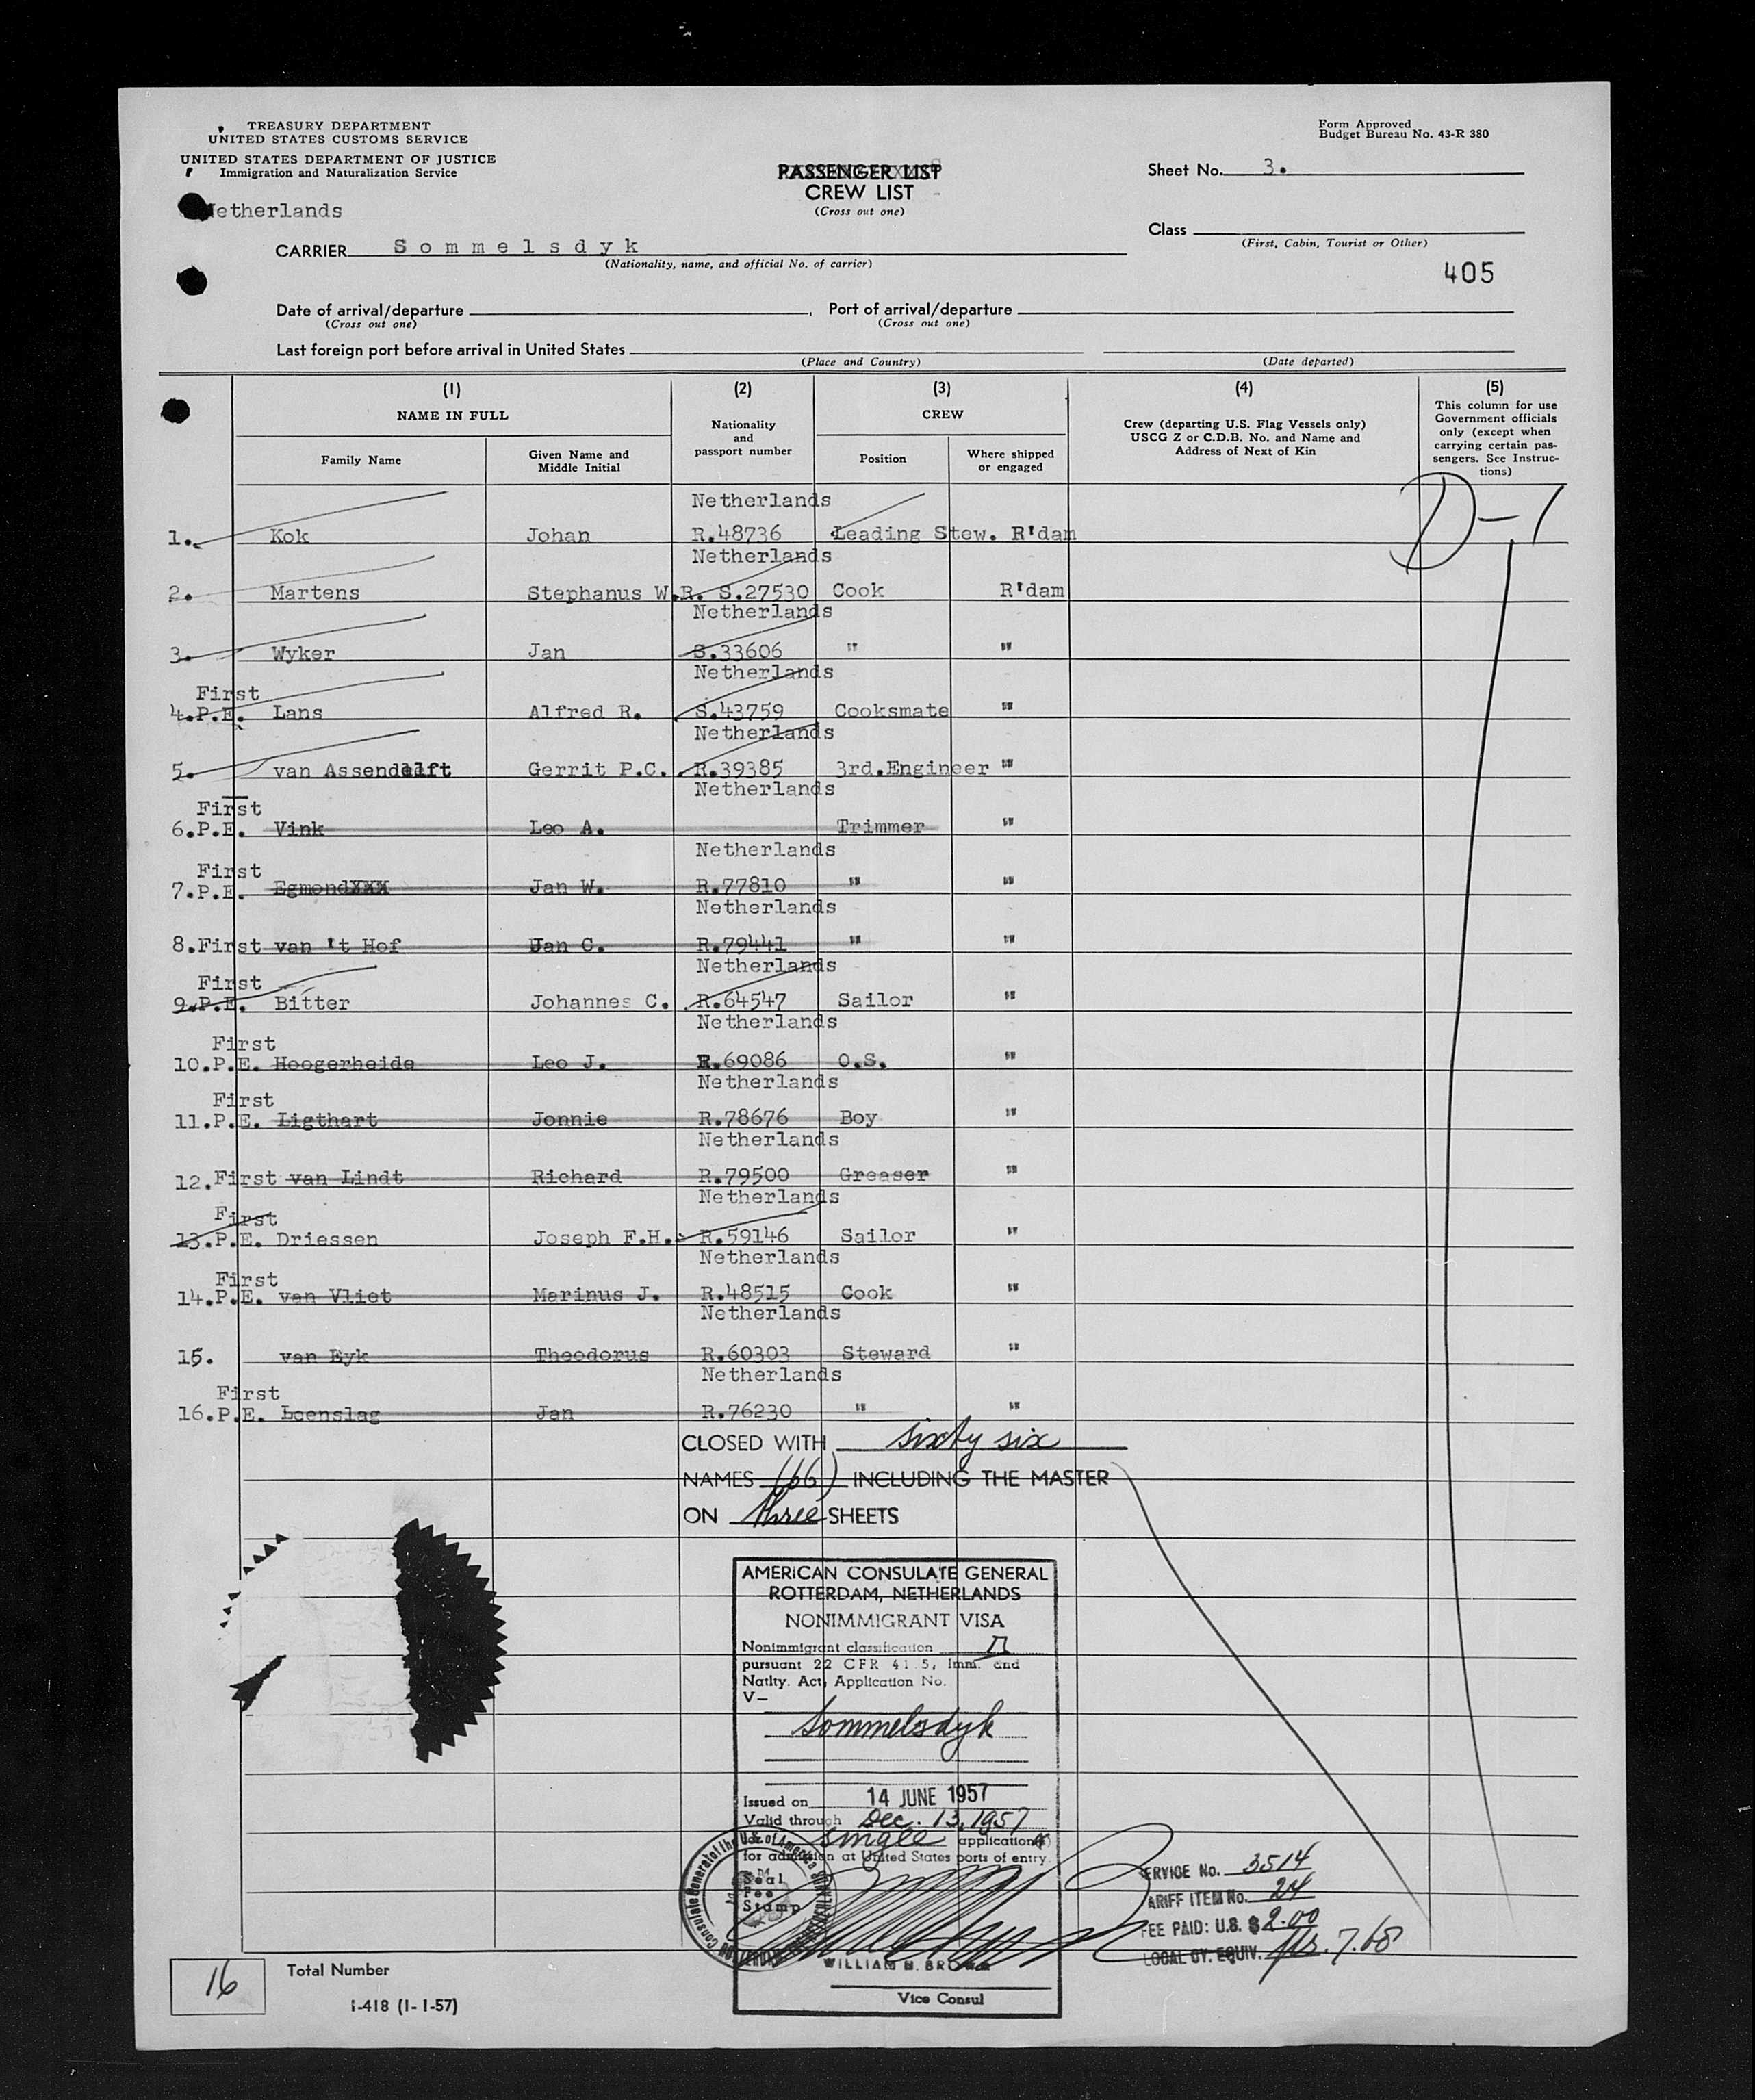 TREASURY DEPARTMENT
UNITED STATES CUSTOMS SERVICE
UNITED STATES DEPARTMENT OF JUSTICE
Immigration and Naturalization Service
Form Approved
Budget Bureau No. 43-R 380
PASSENGER LIST
CREW LIST
(Cross out one)
Sheet No. 3.
Netherlands
Class
(First, Cabin, Tourist or Other)
CARRIER Sommelsdyk
(Nationality, name, and official No. of carrier)
405
Date of arrival/departure
(Cross out one)
Port of arrival/departure
(Cross out one)
Last foreign port before arrival in United States
(Place and Country)
(Date departed)
(1)
NAME IN FULL
Family Name
Given Name and
Middle Initial
(2)
Nationality
and
passport number
(3)
CREW
Position
Where shipped
or engaged
(4)
Crew (departing U.S. Flag Vessels only)
USCG Z or C.D.B. No. and Name and
Address of Next of Kin
(5)
This column for use
Government officials
only (except when
carrying certain pas-
sengers. See Instruc-
tions)
D-1
Netherlands
1. Kok Johan R.48736 Leading Stew. R'dam
Netherlands
2. Martens Stephanus W.R. S.27530 Cook R'dam
Netherlands
3. Wyker Jan S.33606 " "
Netherlands
First
4.P.E. Lans Alfred R. S.43759 Cooksmate "
Netherlands
5. van Assendelft Gerrit P.C. R.39385 3rd.Engineer "
Netherlands
First
6.P.E. Vink Leo A. Trimmer "
Netherlands
First
7.P.E. Egmond Jan W. R.77810 " "
Netherlands
8.First van 't Hof Jan C. R.79441 " "
Netherlands
First
9.P.E. Bitter Johannes C. R.64547 Sailor "
Netherlands
First
10.P.E. Hoogerheide Leo J. R.69086 O.S. "
Netherlands
First
11.P.E. Ligthart Jonnie R.78676 Boy "
Netherlands
12.First van Lindt Richard R.79500 Greaser "
Netherlands
First
13.P.E. Driessen Joseph F.H. R.59146 Sailor "
Netherlands
First
14.P.E. van Vliet Marinus J. R.48515 Cook "
Netherlands
15. van Eyk Theodorus R.60303 Steward "
Netherlands
First
16.P.E. Loenslag Jan R.76230 " "
CLOSED WITH sixty six
NAMES (66) INCLUDING THE MASTER
ON three SHEETS
AMERICAN CONSULATE GENERAL
ROTTERDAM, NETHERLANDS
NONIMMIGRANT VISA
Nonimmigrant classification D
pursuant 22 CFR 41.5, Imm. and
Natlty. Act, Application No.
V-
Sommelsdyk
Issued on 14 JUNE 1957
Valid through Dec. 13, 1957
for single application(s)
for admission at United States ports of entry.
Seal
Fee
Stamp
WILLIAM H. BROWN
Vice Consul
ERVICE No. 3514
ARIFF ITEM No. 24
FEE PAID: U.S. $ 2.00
LOCAL CY. EQUIV. fls. 7.68
16
Total Number
I-418 (1-1-57)